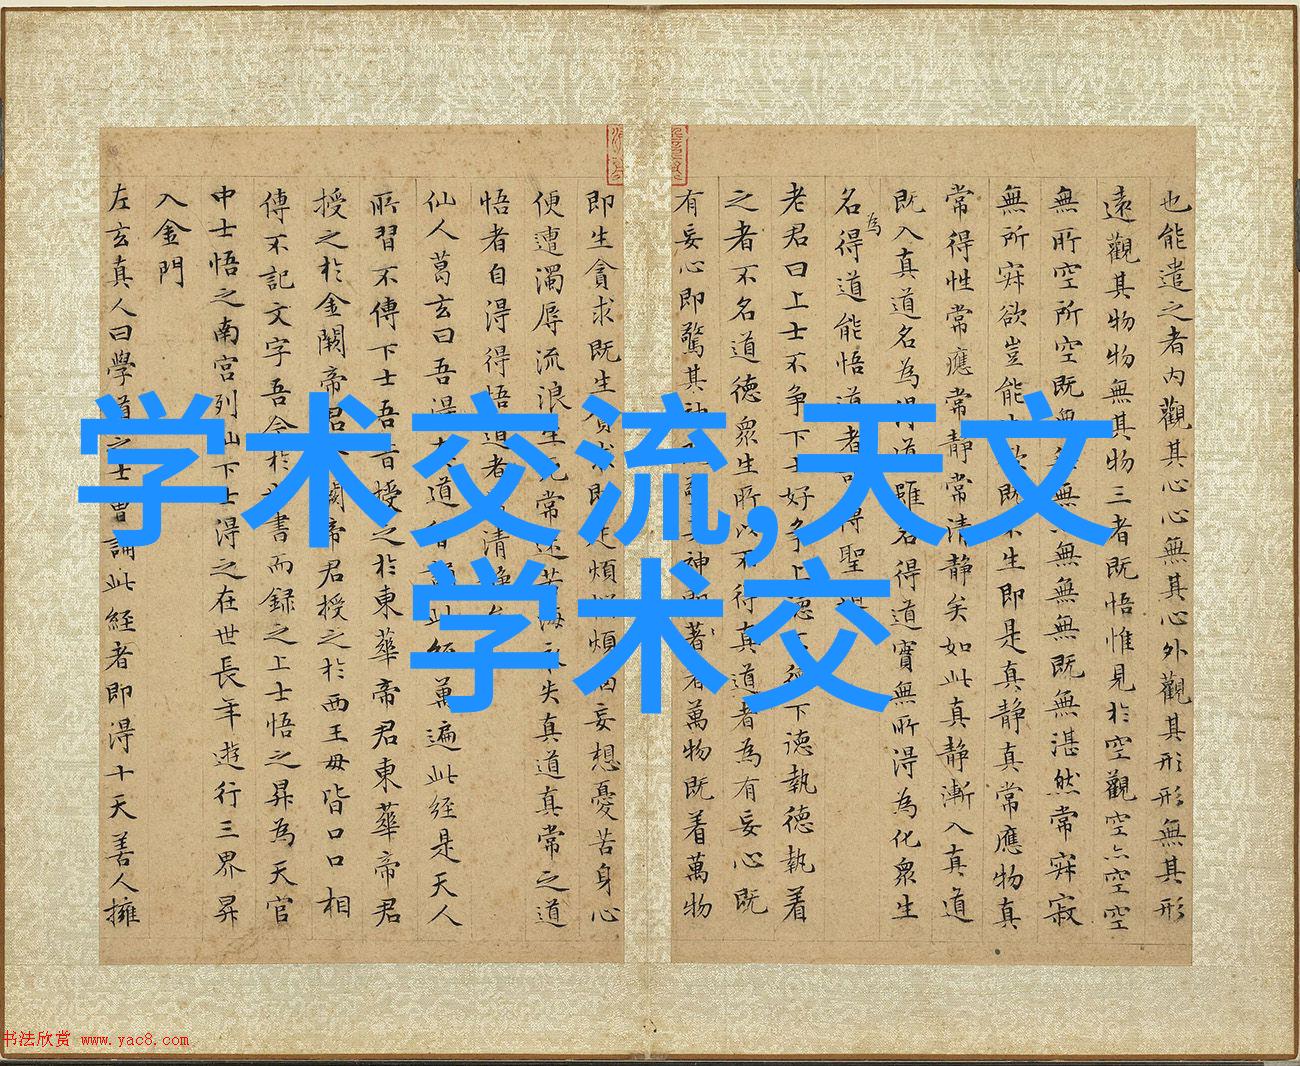 也能遣之者内觀其心心無其心外觀其形形無其形
遠觀其物物無其物三者既悟惟見於空觀空亦空空
無所空所空既無無無無無既無湛然常寂寂
無所寂欲豈能既不生即是真静真常應物真
常得性常應常静常清静矣如此真静漸入真道
既入真道名為得道雖名得道實無所得為化衆生
名為得道能悟道者得聖道
老君曰上士不争下士好争上德下德執德執着
之者不名道德衆生所以不得真道者為有妄心既
有妄心即驚其神神即著萬物既着萬物
即生貪求既生貪求即是煩惱煩妄想憂苦身心
便遭濁辱流浪生死常沉苦海永失真道真常之道
悟者自得得悟道者清静矣
仙人葛玄曰吾得道曾誦此經萬遍此經是天人
所習不傳下士吾昔授之於東華帝君東華帝君
授之於金闕帝君闕帝君授之於西王母皆口口相
傳不記文字吾今於書而録之上士悟之昇為天官
中士悟之南宫列仙下士得之在世長年遊行三界昇
入金門
左玄真人曰學道之士曾誦此經者即得十天善人擁
学术交流,天文
学术交
书法欣赏 www.yac8.com